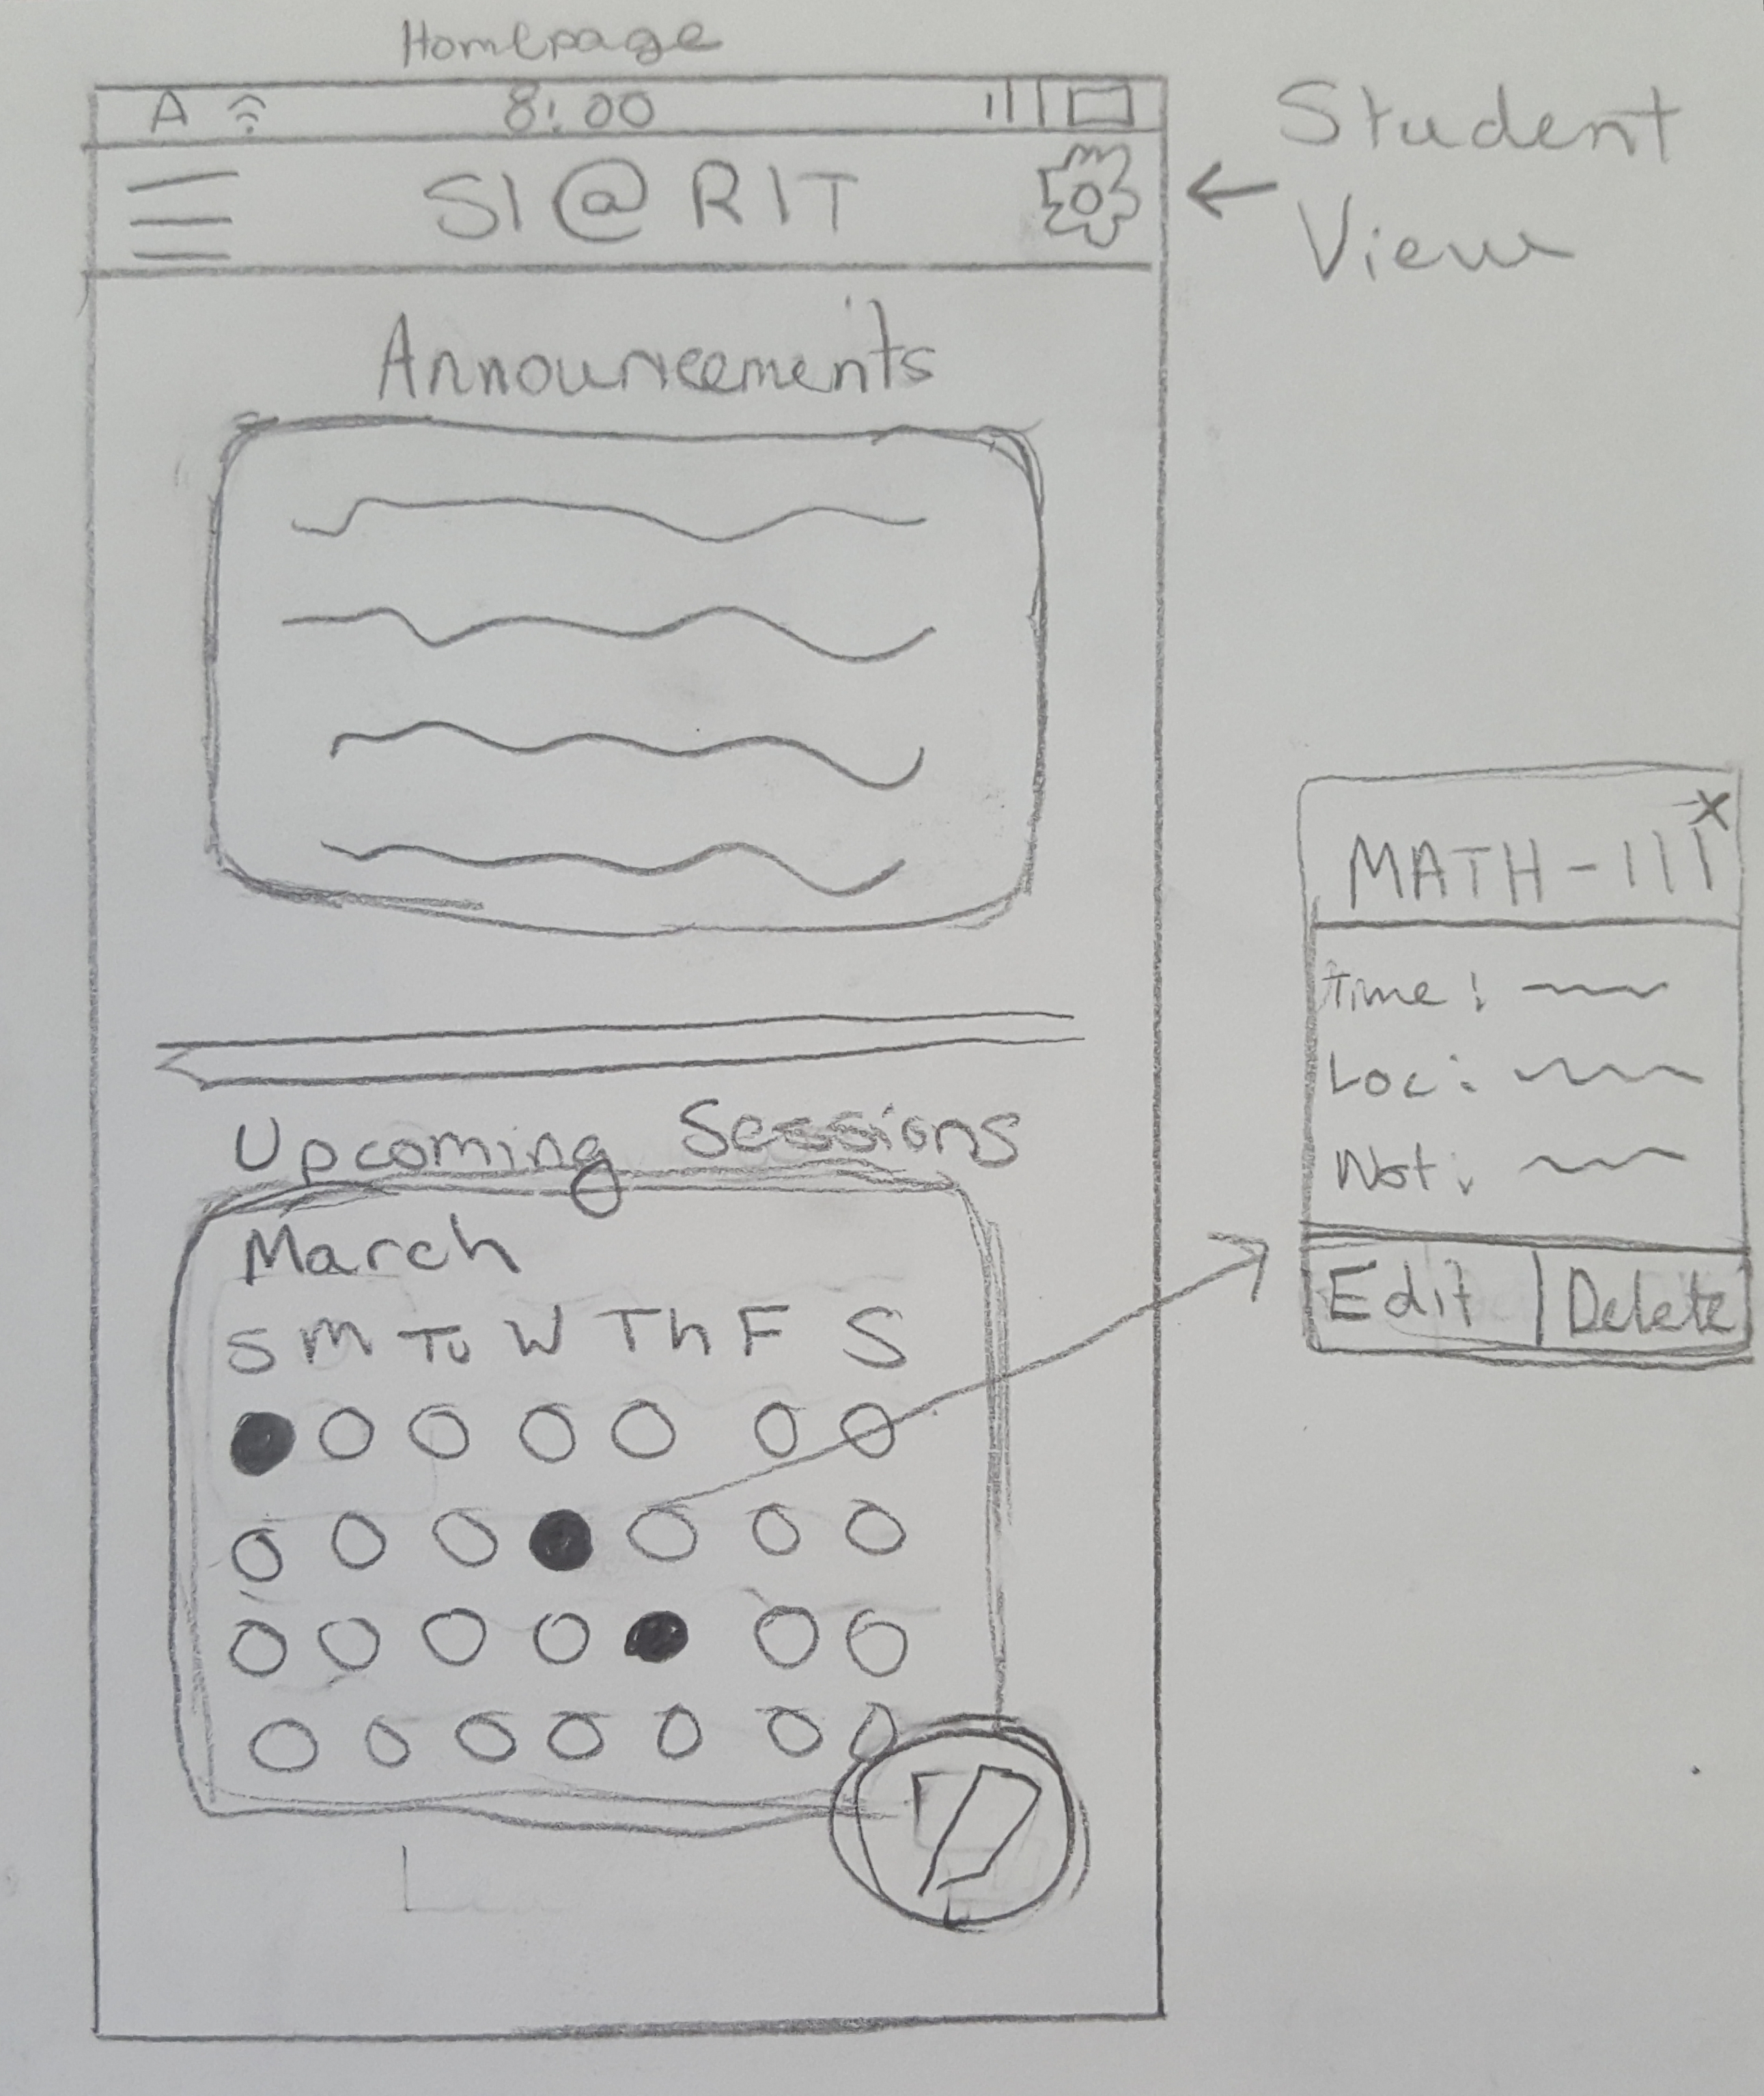 Homepage
A 8:00
SI @ RIT
Student
View
Announcements
Upcoming Sessions
March
S M Tu W Th F S
X
MATH-111
Time:
Loc:
Not:
Edit | Delete